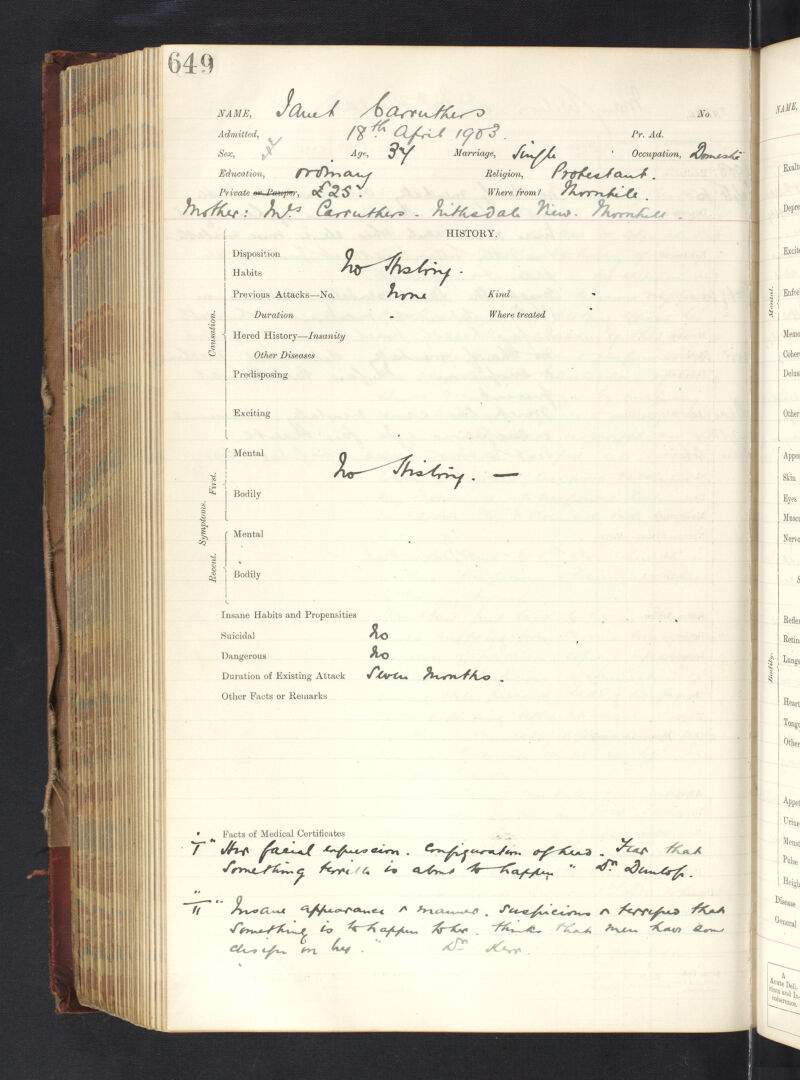 649
NAME, Janet Carruthers No.
Admitted, 18th April 1903. Pr. Ad.
Sex, Age, 34 Marriage, Single Occupation, Domestic
Education, ordinary Religion, Protestant.
Private or Pauper, £25. Where from? Thornhill.
Mother: Mrs Carruthers. Nithsdale View. Thornhill.
HISTORY.
Causation.
Disposition
Habits No History.
Previous Attacks—No. None Kind
Duration Where treated
Hered History—Insanity
Other Diseases
Predisposing
Exciting
Symptoms.
First.
Mental
No History. —
Bodily
Recent.
Mental
Bodily
Insane Habits and Propensities
Suicidal No
Dangerous No
Duration of Existing Attack Seven Months.
Other Facts or Remarks
Facts of Medical Certificates
I "Her facial expression. Configuration of head. Fear that
something terrible is about to happen" Dr. Dunlop.
II "Insane appearance & manner. Suspicious & terrified that
something is to happen to her. thinks that men have some
design on her." Dr Kerr.
NAME,
Mental.
Exalt
Depre
Excite
Enfee
Memo
Coher
Delus
Other
Bodily.
Appe
Skin
Eyes
Muscu
Nervo
S
Reflex
Retin
Lungs
Heart
Tongu
Other
Appet
Urine
Menst
Pulse
Heigh
Disease
General
A
Acute Deli-
rium and In-
coherence.